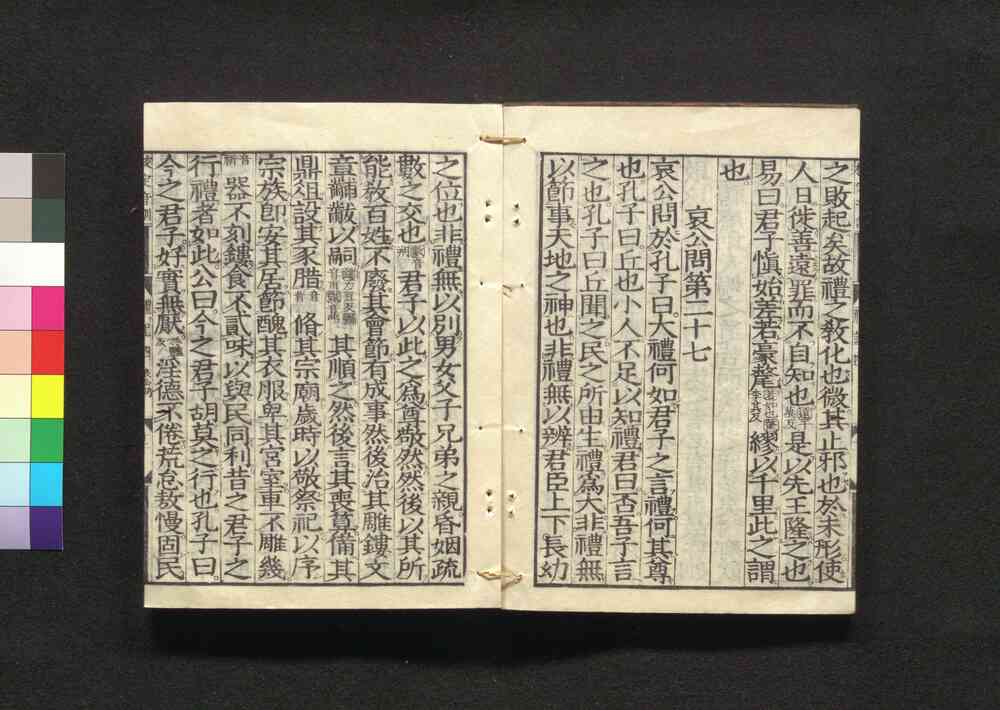 之敗起矣故禮之敎化也微其止邪也於未形使
人日徙善遠罪而不自知也是以先王隆之也
易曰君子愼始差若豪氂繆以千里此之謂
也
哀公問第二十七
哀公問於孔子曰大禮何如君子之言禮何其尊
也孔子曰丘也小人不足以知禮君曰否吾子言
之也孔子曰丘聞之民之所由生禮爲大非禮無
以節事天地之神也非禮無以辨君臣上下長幼
之位也非禮無以別男女父子兄弟之親昏姻疏
數之交也君子以此之爲尊敬然然後以其所
能敎百姓不廢其會節有成事然後治其雕鏤文
章黼黻以嗣其順之然後言其喪筭備其
鼎俎設其豕腊音昔脩其宗廟歲時以敬祭祀以序
宗族卽安其居節醜其衣服卑其宮室車不雕幾
器不刻鏤食不貳味以與民同利昔之君子之
行禮者如此公曰今之君子胡莫之行也孔子曰
今之君子好實無厭淫德不倦荒怠敖慢固民